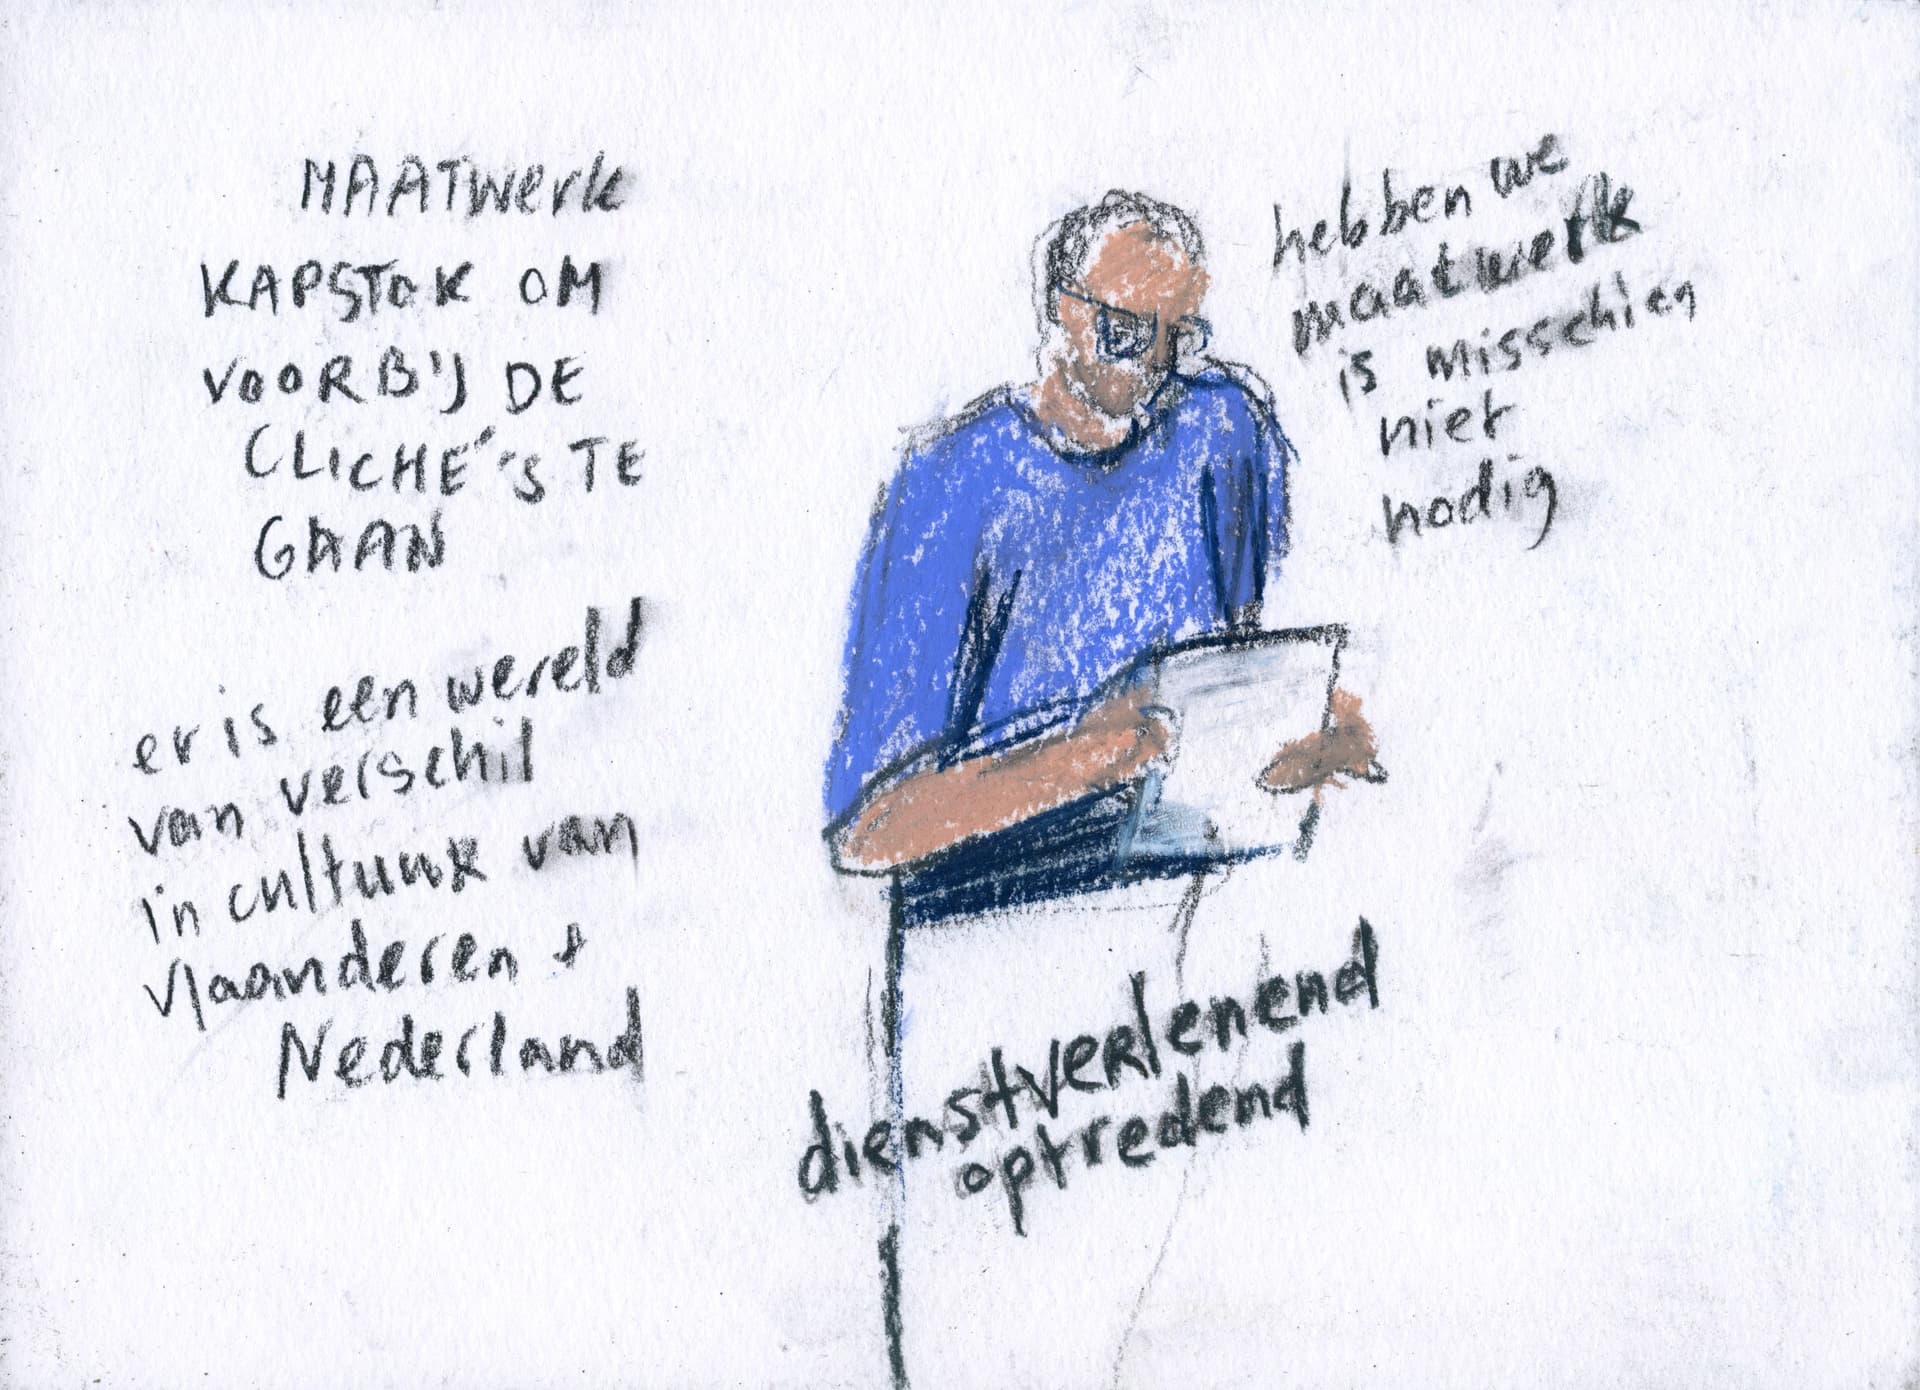 MAATwerk
KAPSTOK OM
VOORBIJ DE
CLICHÉ'S TE
GAAN
er is een wereld
van verschil
in cultuur van
Vlaanderen +
Nederland
hebben we
maatwerk
is misschien
niet
nodig
dienstverlenend
optredend